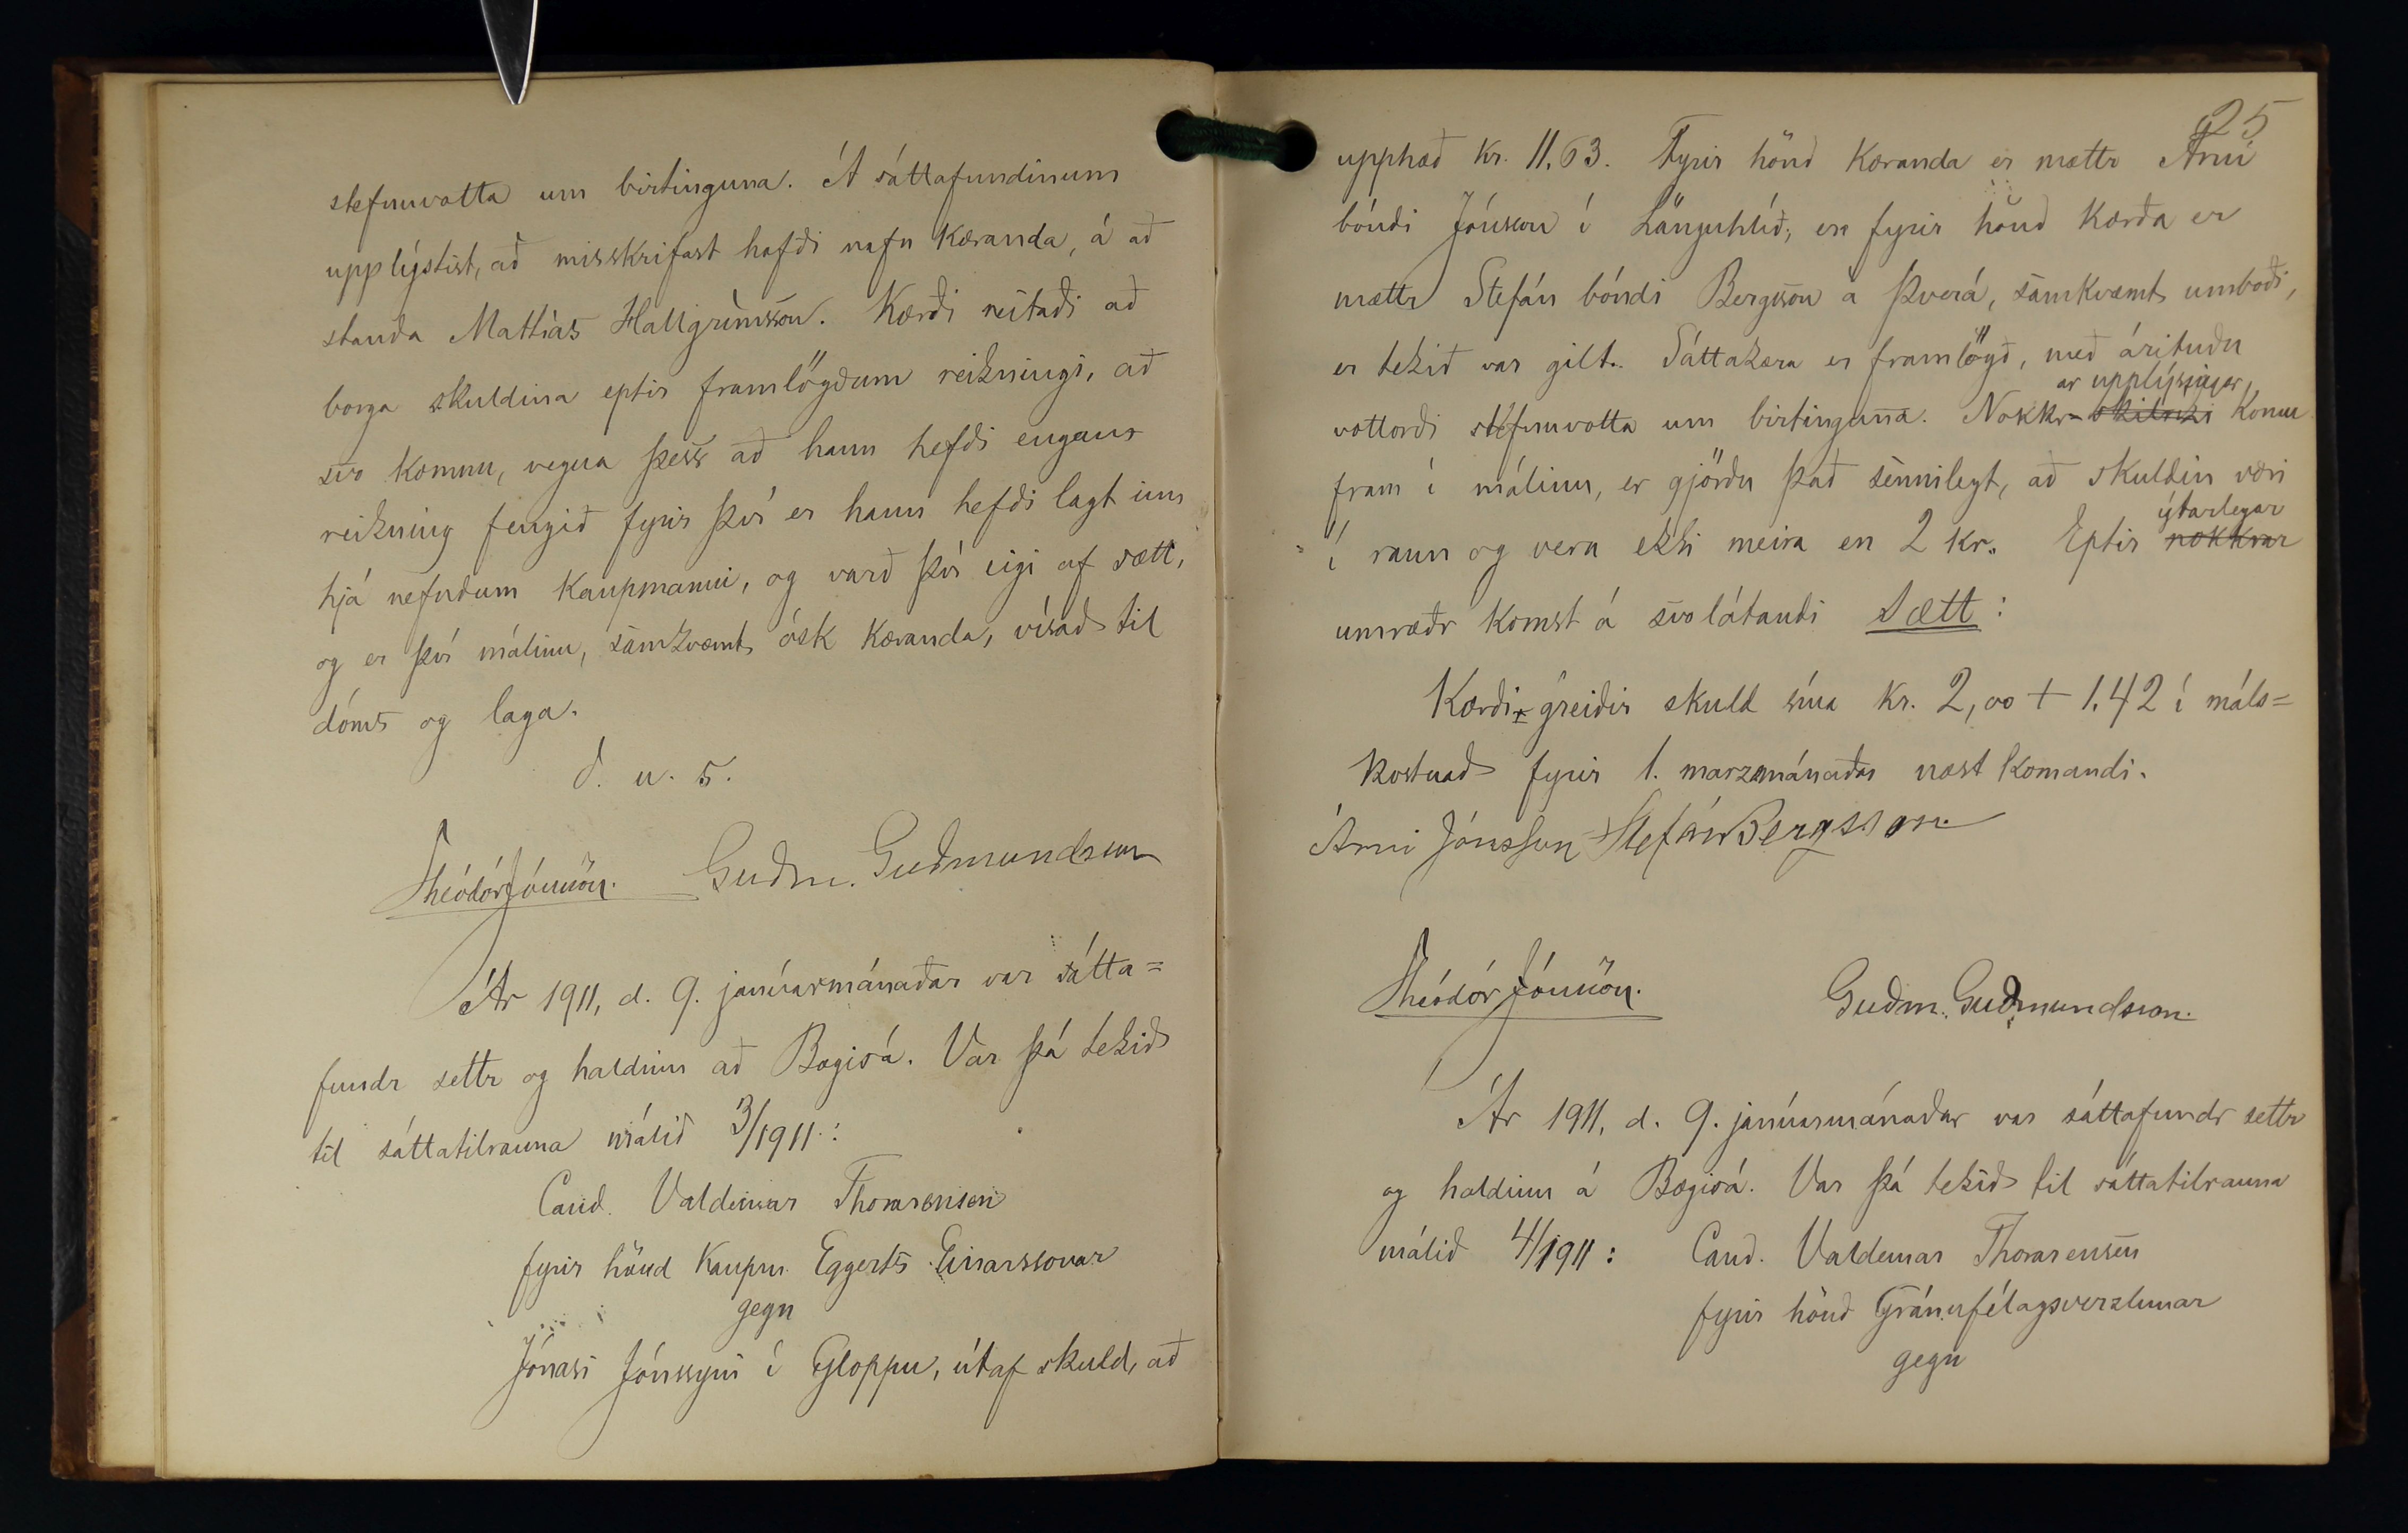 stefnuvotta um birtinguna. Á sáttafundinum
upplýstist, að misskrifast hafði nafn kæranda, á að
standa Mattías Hallgrímsson. Kærði neitaði að
borga skuldina eptir framlögðum reikningi, að
svo komnu, vegna þess að hann hefði engan
reikning fengið fyrir því er hann hefði lagt inn
hjá nefndum kaupmanni, og varð því eigi af sætt,
og er því málinu, samkvæmt ósk kæranda, vísað til
dóms og laga.
d. u. s.
Theódór Jónsson. Guðm. Guðmundsson
Ár 1911, d. 9. janúarmánaðar var sátta=
fundr settr og haldinn að Bægisá. Var þá tekið
til sáttatilrauna málið 3/1911:
Cand. Valdemar Thorarensen
fyrir hönd kaupm. Eggerts Einarssonar
gegn
Jónasi Jónssyni í Gloppu, útaf skuld, að
25
upphæð kr. 11.63. Fyrir hönd kæranda er mættr Árni
bóndi Jónsson í Lönguhlíð, en fyrir hönd kærða er
mættr Stefán bóndi Bergsson á Þverá, samkvæmt umboði,
er tekið var gilt. Sáttakæra er framlögð, með árituðu
ar upplýsingar
vottorði stefnuvotta um birtinguna. Nokkr skilríki komu
fram í málinu, er gjörðu það sennilegt, að skuldin væri
ýtarlegar
í raun og veru ekki meira en 2 kr. Eptir nokkrar
umræðr komst á svolátandi Sætt:
Kærði greiðir skuld sína kr. 2,00 + 1.42 í máls=
kostnað fyrir 1. marzmánaðar næst komandi.
Árni Jónsson Stefán Bergsson
Theódór Jónsson. Guðm. Guðmundsson.
Ár 1911, d. 9. janúarmánaðar var sáttafundr settr
og haldinn á Bægisá. Var þá tekið til sáttatilrauna
málið 4/1911: Cand. Valdemar Thorarensen
fyrir hönd Gránufélagsverzlunar
gegn